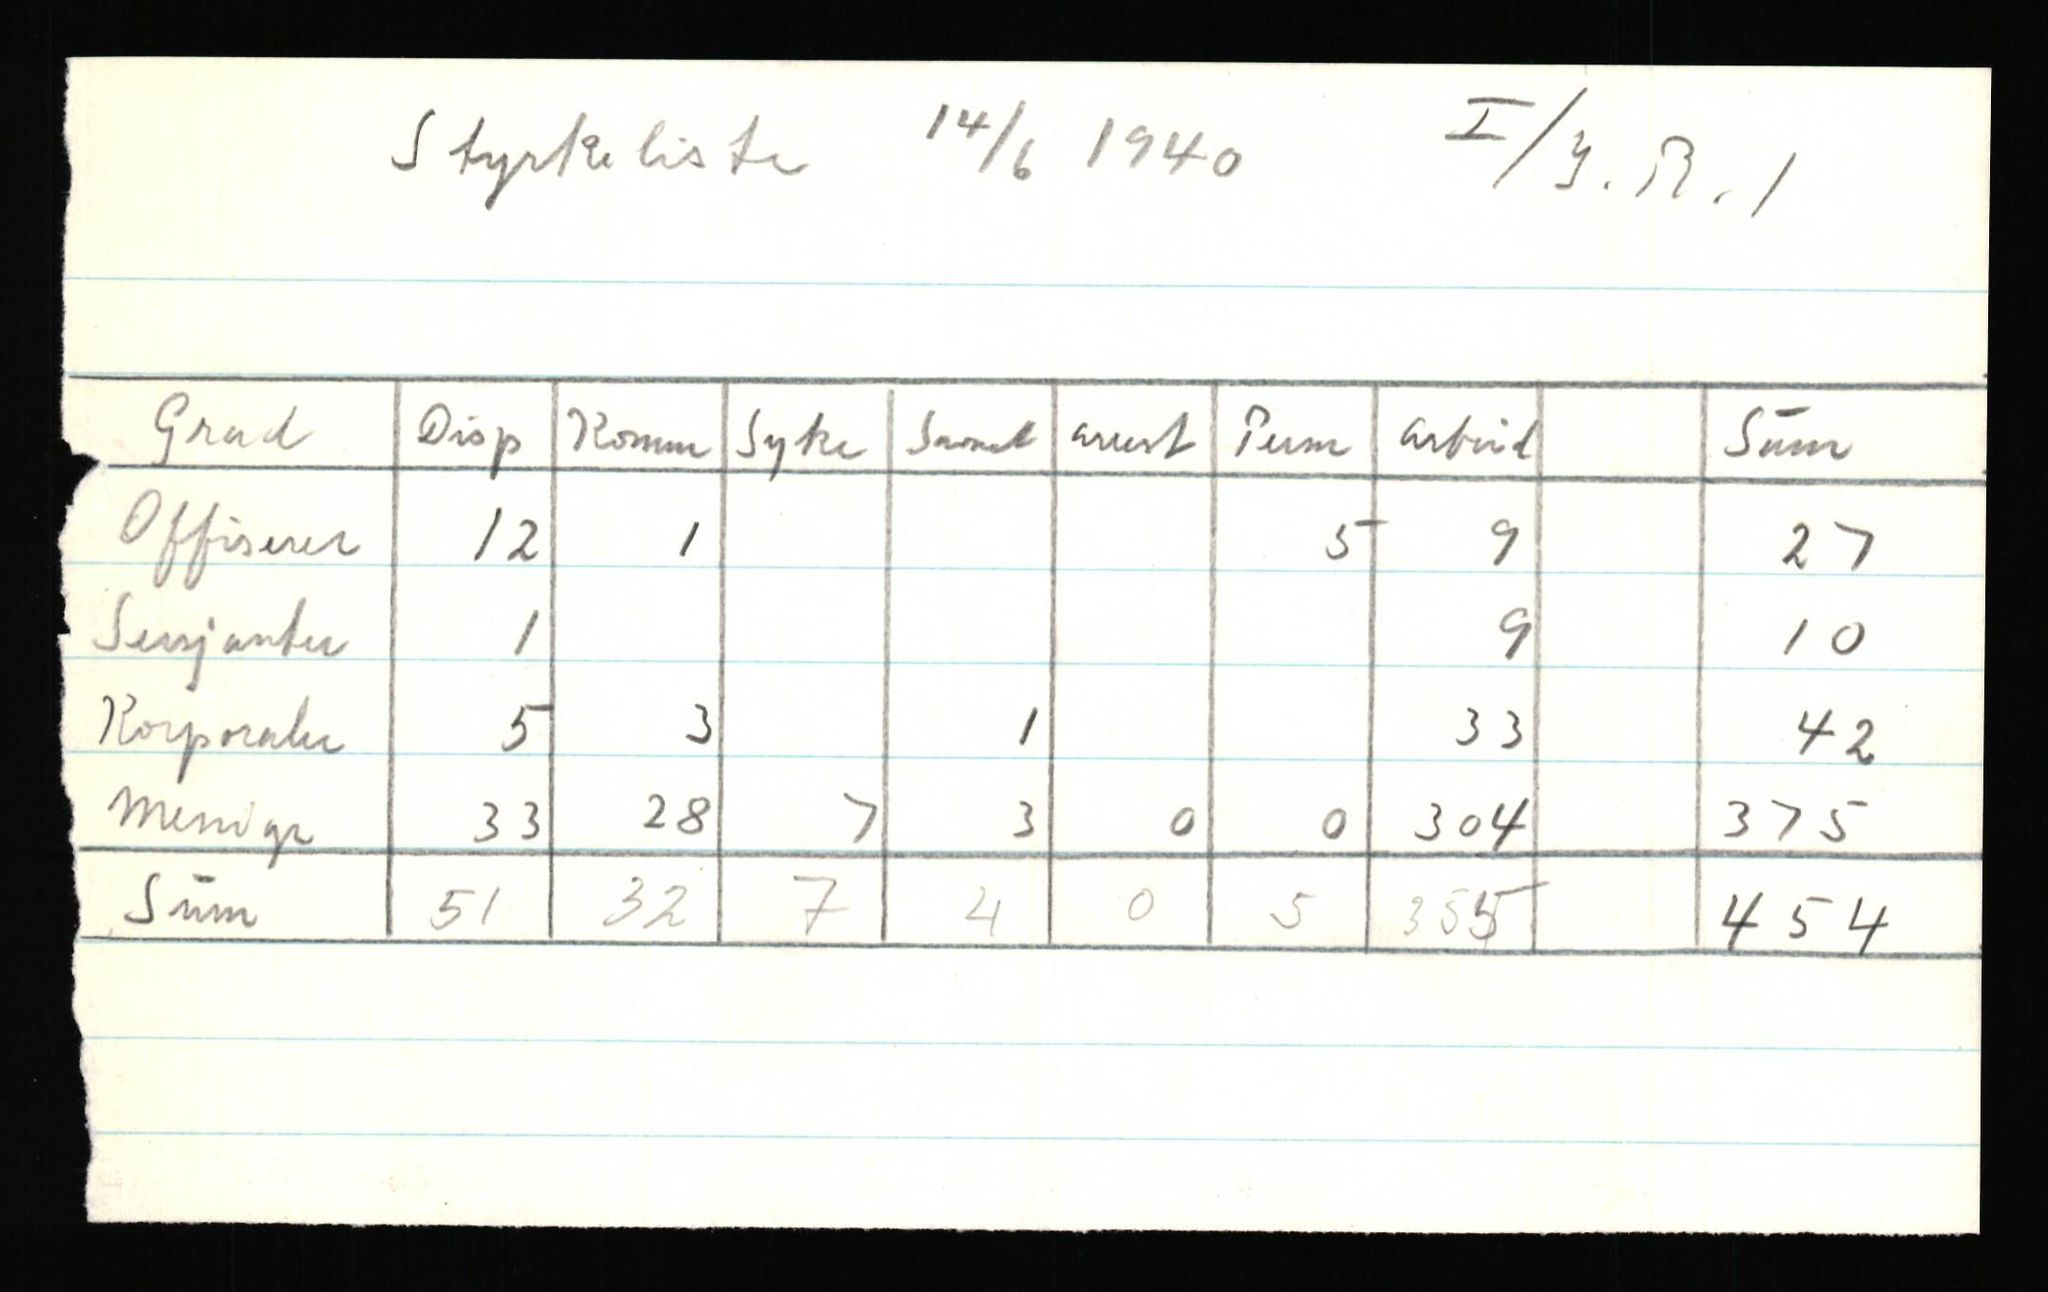 Styrkeliste 14/6 1940 I/J.R.1
Grad Disp Komm Syke Savnet arrest Perm arbeid Sum
Offiserer 12 1 5 9 27
Sersjanter 1 9 10
Korporaler 5 3 1 33 42
Menige 33 28 7 3 0 0 304 375
Sum 51 32 7 4 0 5 355 454